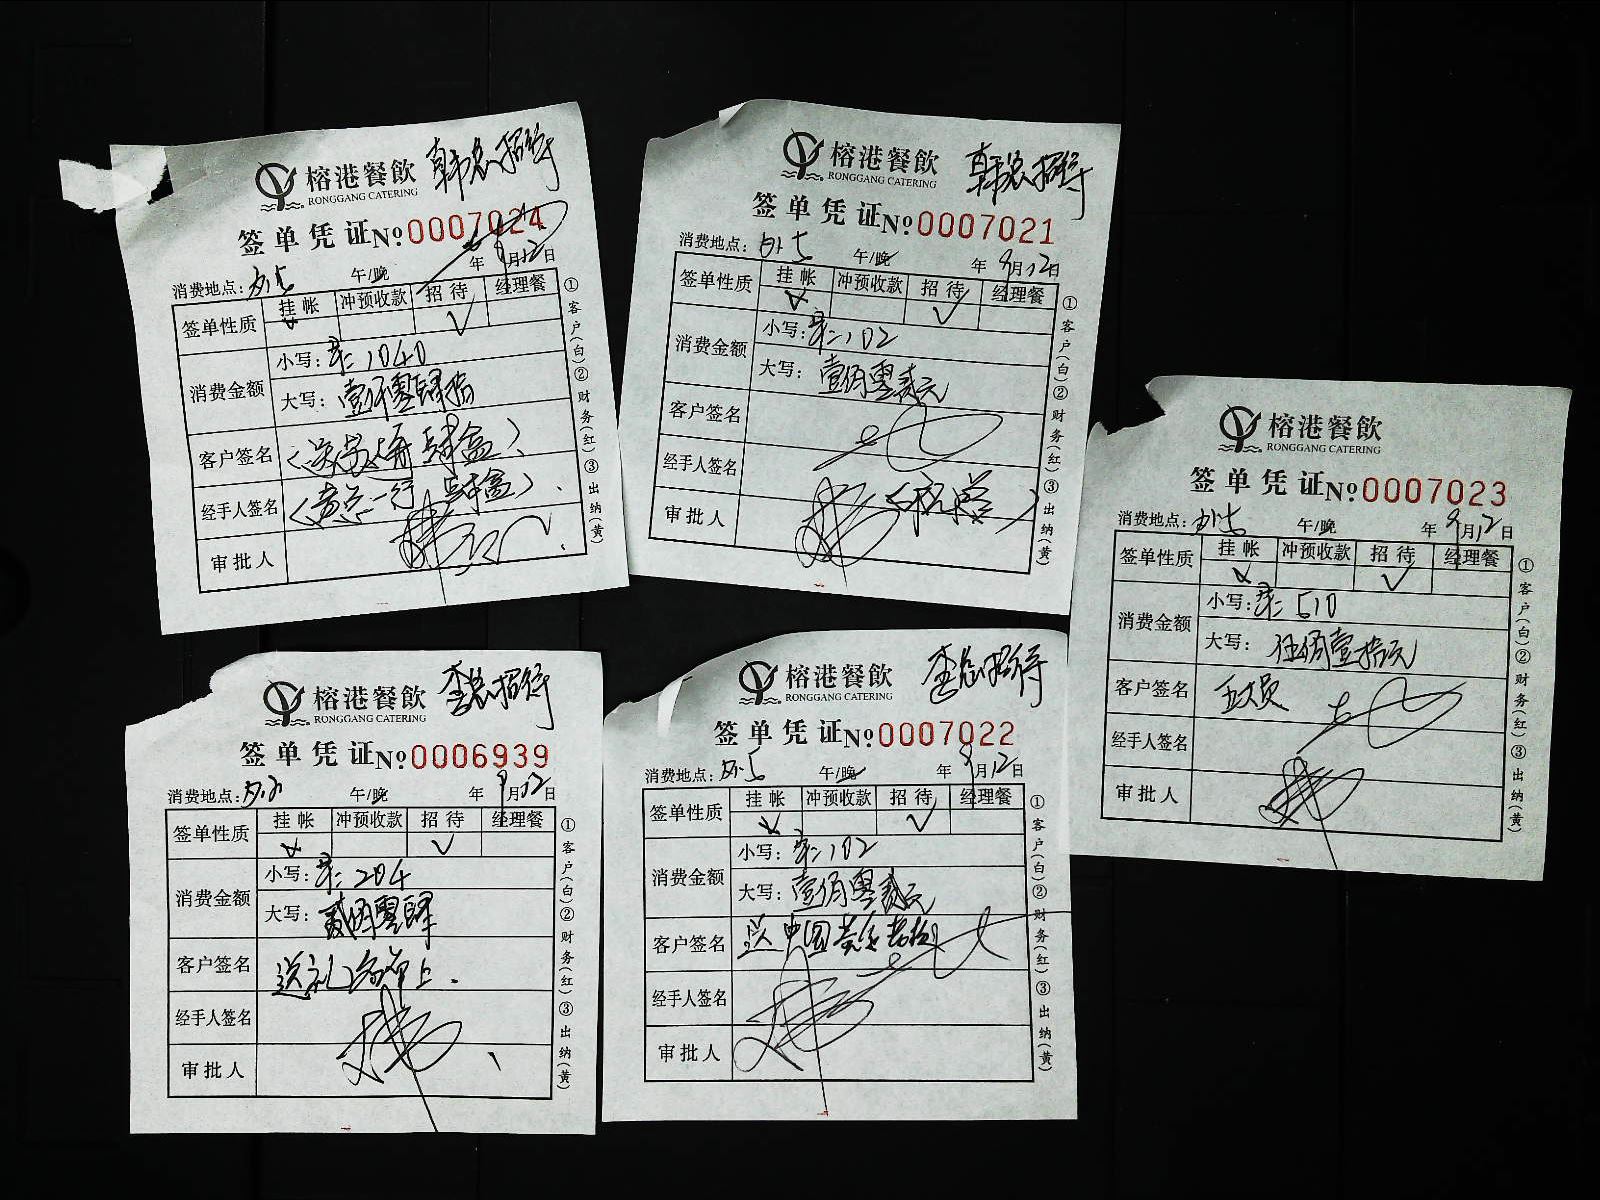 韩总招待
榕港餐飲
RONGGANG CATERING
签单凭证 №0007024
消费地点: 外5 午/晚 年 9月12日
签单性质 挂帐 冲预收款 招待 经理餐
消费金额 小写: 1040
大写: 壹仟零肆拾
客户签名
经手人签名
审批人
①客户(白)②财务(红)③出纳(黄)
韩总招待
榕港餐飲
RONGGANG CATERING
签单凭证 №0007021
消费地点: 外5 午/晚 年 9月12日
签单性质 挂帐 冲预收款 招待 经理餐
消费金额 小写: 102
大写: 壹佰零贰元
客户签名
经手人签名
审批人
①客户(白)②财务(红)③出纳(黄)
榕港餐飲
RONGGANG CATERING
签单凭证 №0007023
消费地点: 外5 午/晚 年 9月12日
签单性质 挂帐 冲预收款 招待 经理餐
消费金额 小写: 510
大写: 伍佰壹拾元
客户签名
经手人签名
审批人
①客户(白)②财务(红)③出纳(黄)
李总招待
榕港餐飲
RONGGANG CATERING
签单凭证 №0006939
消费地点: 午/晚 年 9月12日
签单性质 挂帐 冲预收款 招待 经理餐
消费金额 小写: 204
大写: 贰佰零肆
客户签名 送礼名单上.
经手人签名
审批人
①客户(白)②财务(红)③出纳(黄)
李总招待
榕港餐飲
RONGGANG CATERING
签单凭证 №0007022
消费地点: 外5 午/晚 年 9月12日
签单性质 挂帐 冲预收款 招待 经理餐
消费金额 小写: 102
大写: 壹佰零贰元
客户签名 送中国
经手人签名
审批人
①客户(白)②财务(红)③出纳(黄)